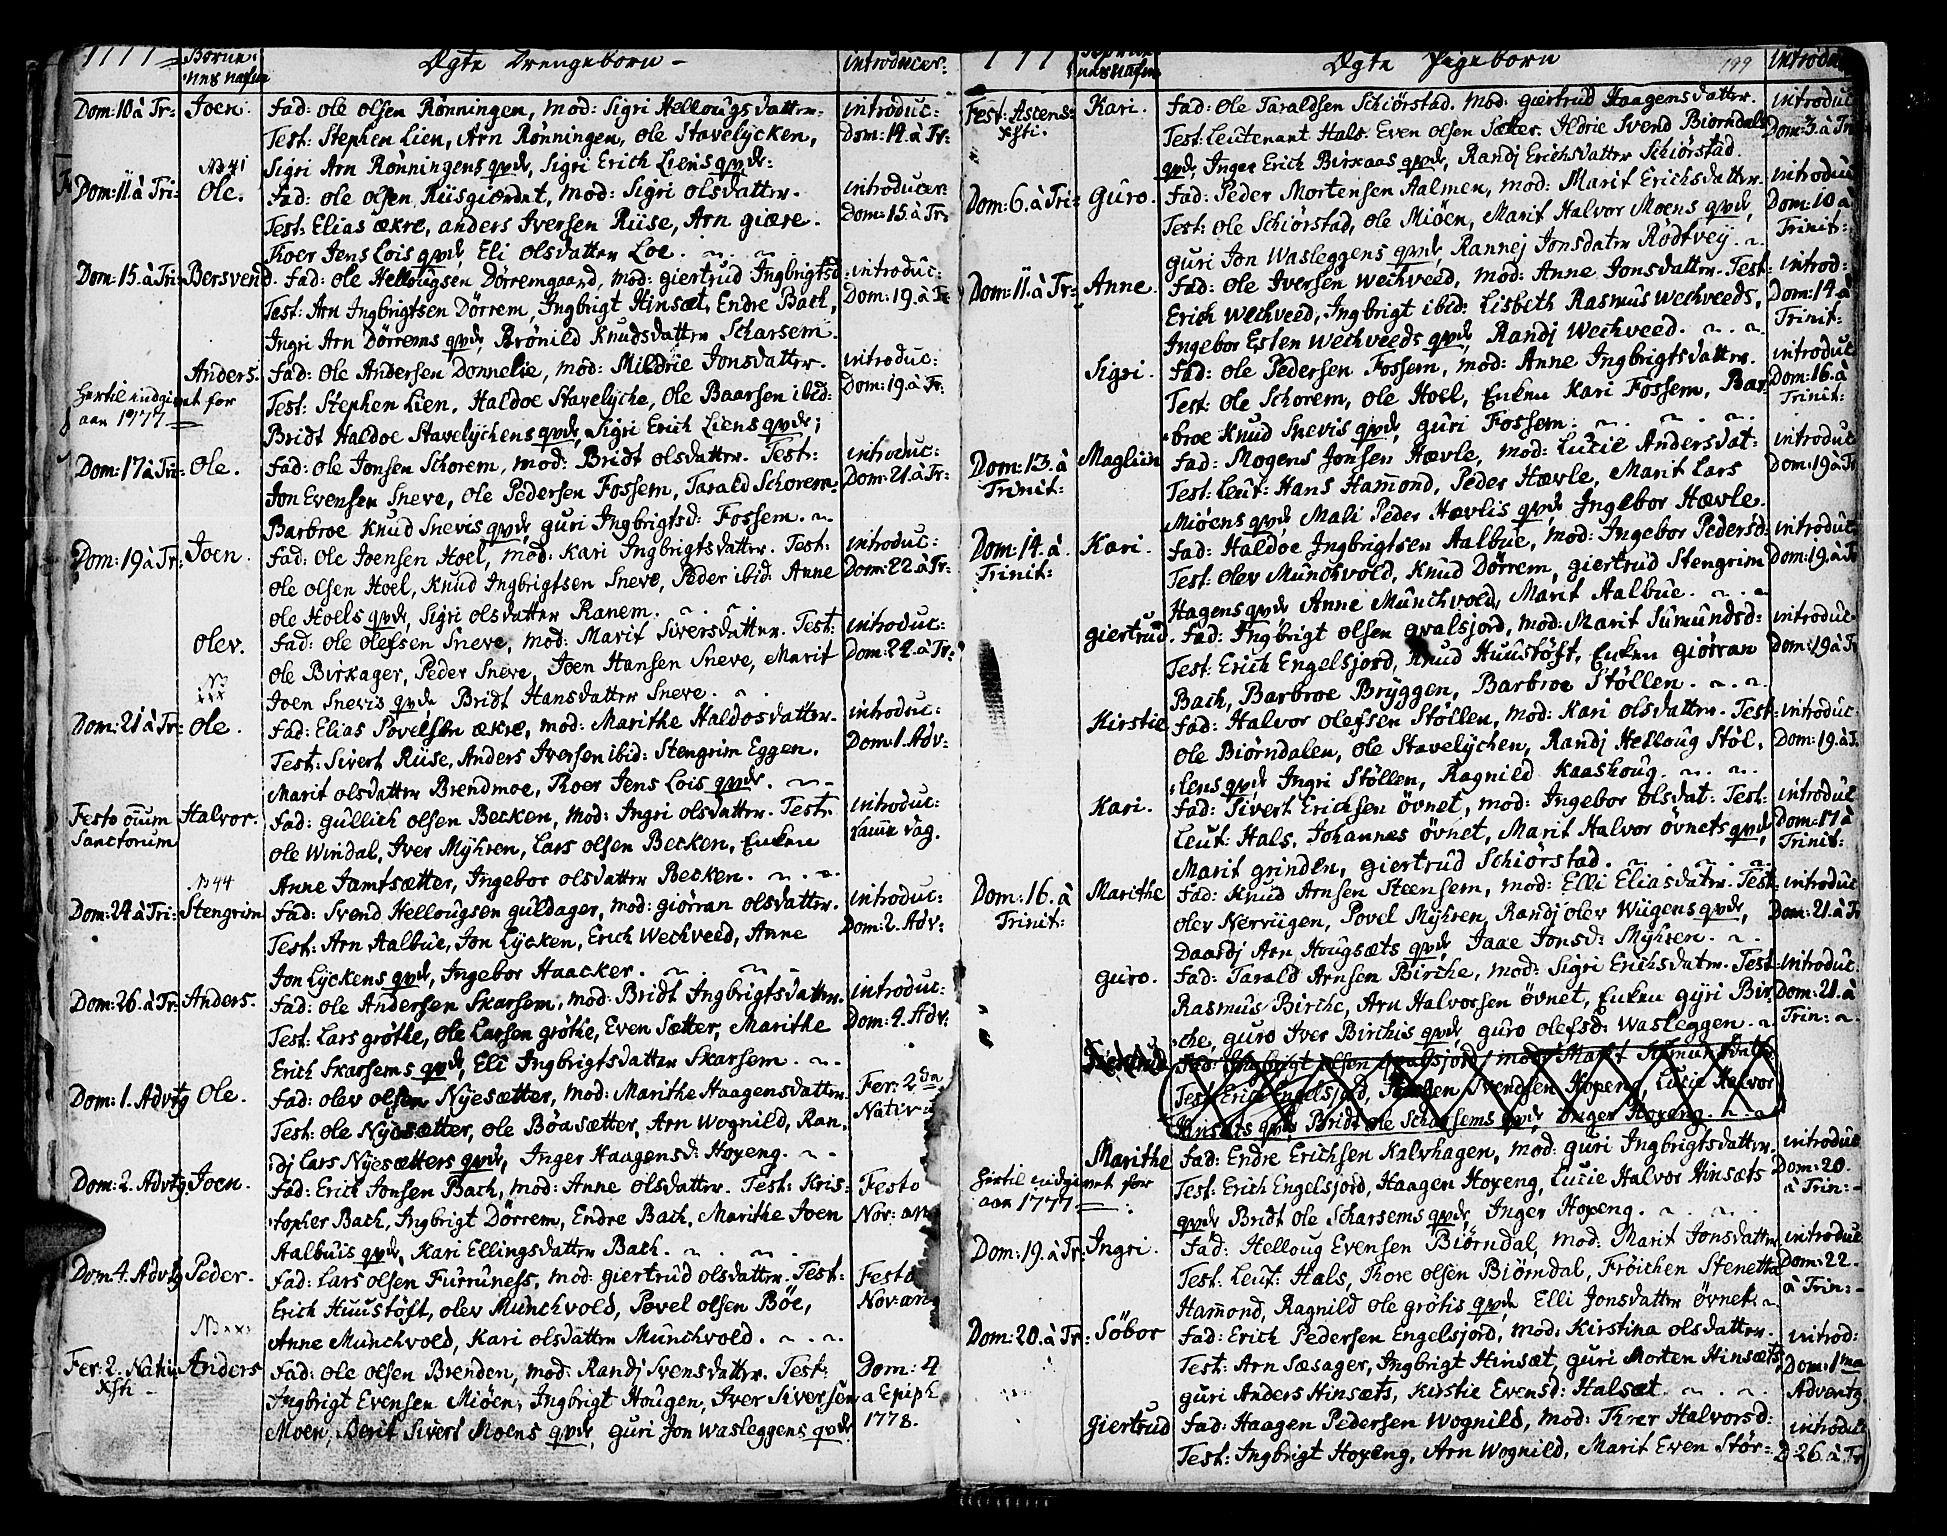 1777 Børne: Ægte Drengebørn introducer:
nes nafne
Dom: 10 à Tr: Joen. Fad: Ole Olsen Rönningen, mod: Sigri Hellougs dattr. introduc:
Test: Stephen Lien, Arn Rönningen, Ole Stavelÿcken, Dom: 14. à Tr:
Sigri Arn Rönningens qvde, Sigri Erich Liens qvde:
No 41
Dom: 11. à Tri: Ole. Fad: Ole Olsen Riisgiærdet, mod: Sigri Olsdattr. introducer
Test: Elias Ækre, Anders Iversen Riise, Arn Giære. Dom: 15. à Tr:
Thoer Jens Lois qvde, Eli Olsdatter Loe.
Dom: 15. à Tri: Bersvend. Fad: Ole Hellougsen Dörremgaard, mod: Giertrud Ingbrigtsd: introduc:
Test: Arn Ingbrigtsen Dörrem, Ingbrigt Hinsæt, Endre Bach, Dom: 19. à Tr
Ingri Arn Dörrems qvde, Brönild Knudsdattr Scharsem.
Anders. Fad: Ole Andersen Donnelie, mod: Mildrie Jonsdattr. introduc:
Hertil indgivet for Test: Stephen Lien, Haldoe Stavelÿche, Ole Baarsen ibid: Dom: 19. à Tr:
aar 1777 Bridt Haldoe Stavelÿchens qvde, Sigri Erich Liens qvde;
Dom: 17 à Tri: Ole. Fad: Ole Jonsen Schorem, mod: Bridt Olsdattr. Test: introduc:
Jon Evensen Sneve, Ole Pedersen Fossem, Tarald Schorem Dom: 21. à Tr:
Barbroe Knud Snevis qvde, Guri Ingbrigtsd: Fossem.
Dom: 19 à Tr: Joen. Fad: Ole Joensen Hoel, mod: Kari Ingbrigtsdattr. Test: introduc:
Ole Olsen Hoel, Knud Ingbrigtsen Sneve, Peder ibid: Anne Dom: 22. à Tr:
Ole Hoells qvde, Sigri Olsdatter Ranem.
Olev. Fad: Ole Olefsen Sneve, mod: Marit Siversdatter. Test: introduc:
Ole Birkager, Peder Sneve, Joen Hansen Sneve, Marit Dom: 22. à Tr:
Joen Snevis qvde Bridt Hansdattr Sneve.
Dom: 21 à Tr: Ole. Fad: Elias Povelsen Ækre, mod: Marithe Haldosdattr. introduc:
Test: Sivert Riise, Anders Iversen ibid: Stengrim Eggen. Dom: 1. Adv:
Marit Olsdattr Brendmoe, Thoer Jens Lois qvde.
Festo oium Halvor. Fad: Gullich Olsen Becken, mod: Ingri Olsdattr. Test: introduc:
Sanctorum Ole Windal, Iver Mÿhren, Lars Olsen Becken, Enken
Anne Jamtsætter, Ingebor Olsdattr Becken.
No 44
Dom: 24 à Tri: Stengrim Fad: Svend Hellougsen Guldager, mod: Giörran Olsdattr. introduc:
Test: Arn Aalbue, Jon Lÿcken, Erich Wechveed, Anne Dom: 2. Adv:
Jon Lÿckens qvde, Ingebor Haacker.
Dom: 26. à Tr: Anders. Fad: Ole Andersen Skarsem, mod: Bridt Ingbrigtsdattr. introduc:
Test: Lars Gröthe, Ole Larsen Gröthe, Even Sætter, Marithe Dom: 4. Adv:
Erich Skarsems qvde, Eli Ingbrigtsdatter Skarsem.
Dom: 1. Advtg Ole. Fad: Olev Olsen Nÿesætter, mod: Marithe Haagensdattr. Fer: 2da
Test: Ole Nÿesætter, Ole Böasætter, Arn Wognild, Ran, Nativ
dj Lars Nÿesætters qvde, Inger Haagensd: Hoxeng.
Dom: 2. Advtg Joen. Fad: Erich Jonsen Bach, mod: Anne Olsdattr. Test: Kris: Festo
topher Bach, Ingbrigt Dörrem, Endre Bach, Marithe Joen Nov: an
Aalbuis qvde, Kari Ellingsdattr Bach.
Dom 4. Advtg Peder. Fad: Lars Olsen Furruness, mod: Giertrud Olsdattr. Test: Festo
Erich Huustöft, Olev Munchvold, Povel Olsen Böe, Nov: an
Anne Munchvold, Kari Olsdattr Munchvold.
Fer: 2. Nativ Anders Fad: Ole Olsen Brenden, mod: Randj Svensdattr. Test: Dom: 4
Xsti Ingbrigt Evensen Miöen, Ingbrigt Hougen, Iver Siversen a Epiph
Moen, Berit Sivert Moens qvde, Guri Jon Wasleggens qvde 1778.
1777 Ægte Pigebørn 199 introduc
nes nafne
Fest: Ascens: Kari. Fad: Ole Taraldsen Schiörstad. Mod: Giertrud Haagensdatter. introduc
Xsti. Test: Leutenant Hals. Even Olsen Sætter. Ildrie Svend Biorndals Dom: 3. à Tri
qvde, Inger Erich Birkaas qvde, Randj Erichsdatter Schiörstad.
Dom: 6. à Tri: Guro. Fad: Peder Mortensen Aalmen, mod: Marit Erichsdatter. introduc
Test: Ole Schiörstad, Ole Miöen, Marit Halvor Moens qvde, Dom: 10 à
Guri Jon Wasleggens qvde, Rannej Jonsdatr Rodtvej. Trinit:
Dom: 11. à Tr: Anne. Fad: Ole Iversen Wechveed, mod: Anne Jonsdattr. Test: introd:
Erich Wechveed, Ingbrigt ibid: Lisbeth Rasmus Wechveeds, Dom: 14. à
Ingebor Eslen Wechveeds qvde, Randj Wechveed. Trinit:
Sigri. Fad: Ole Pedersen Fossem, mod: Anne Ingbrigtsdattr. introduc
Test: Ole Schorem, Ole Hoel, Enken Kari Fossem, Bar- Dom: 16. à
broe Knud Snevis qvde, Guri Fossem. Trinit:
Dom: 13. à Magliin Fad: Mogens Jonsen Hævle, mod: Lucie Andersdat: introduc
Trinit: Test: Leut: Hans Hammond, Peder Hævle, Marit Lars Dom: 19 à Tr
Miöens qvde, Mali Peder Hævlis qvde, Ingebor Hævle.
Dom: 14. à Kari. Fad: Haldoe Ingbrigtsen Aalbue, mod: Ingebor Pedersd: introduc
Trinit: Test: Olev Munchvold, Knud Dörrem, Giertrud Stengrim Dom: 19. à Tr
Hagens qvde, Anne Munchvold, Marit Aalbue.
Giertrud. Fad: Ingbrigt Olsen Qvalsjord, mod: Marit Sumundsd: introduc
Test: Erich Engelsjord, Knud Huustöft, Enken Giörran Dom: 19 à Tr
Bach, Barbroe Brÿggen, Barbroe Stöllen.
Kirstie Fad: Halvor Olefsen Stöllen, mod: Kari Olsdattr. Test: introduc
Ole Biörndalen, Ole Stavelÿchen, Randj Helloug Stöl, Dom: 19. à T.
lens qvde, Ingri Stöllen, Ragnild Kaashoug.
Kari. Fad: Sivert Erichsen Övnet, mod: Ingebor Olsdat: Test: introduc
Leut: Hals, Johannes Övnet, Marit Halvor Övnets qvde, Dom: 17 à
Marit Grinden, Giertrud Schiörstad. Trinit:
Dom: 16. à Marithe Fad: Knud Arnsen Steensem, mod: Elli Eliasdatr. Test introduc
Trinit: Olev Nerviigen, Povel Mÿhren, Randj Olev Wiigens qvde, Dom: 21. à Tr
Daardj Arn Hougsæts qvde, Jaae Jonsd: Mÿhren.
Guro. Fad: Tarald Arnsen Birche, mod: Sigri Erichsdatr. Test introduc
Rasmus Birche, Arn Halvorsen Övnet, Enken Gÿri Bir, Dom: 21. à
che, Guro Iver Birchis qvde, Guro Olefsd: Wasleggen. Trin:
Fad: Ingbrigt Olsen Qvalsjord, mod: Marit Sumundsdattr
Test: Erich Engelsjord, Haagen Svendsen Hoxeng, Lucie Halvor
Hinsæts qvde, Bridt Ole Scharsems qvde, Inger Hoxeng.
Marithe Fad: Endre Erichsen Kalvhagen, mod: Guri Ingbrigtsdattr. introduc
Hertil indgivet for Test: Erich Engelsjord, Haagen Hoxeng, Lucie Halvor Hinsæts Dom: 20.
aar 1777 qvde Bridt Ole Scharsems qvde, Inger Hoxeng. à Trin:
Dom: 19. à Tr: Ingri. Fad: Helloug Evensen Biörndal, mod: Marit Jonsdattr. introduc
Test: Leut: Hals, Thore Olsen Biörndal, Fröichen Stenetta Dom: 22.
Hammond, Ragnild Ole Grötis qvde Elli Jonsdattr Övnet. à Trin:
Dom: 20. à Tr: Söbor Fad: Erich Pedersen Engelsjord, mod: Kirstina Olsdattr. introd:
Test: Arn Sæsager, Ingbrigt Hinsæt, Guri Morten Hinsæts, Dom: 1ma
Guri Anders Hinsæts, Kirstie Evensd: Halsæt. Adventg.
Giertrud Fad: Haagen Pedersen Wognild, mod: Thrær Halvorsd: introduc
Test: Ingbrigt Hoxeng, Arn Wognild, Marit Even Stör- D 26. à Tr